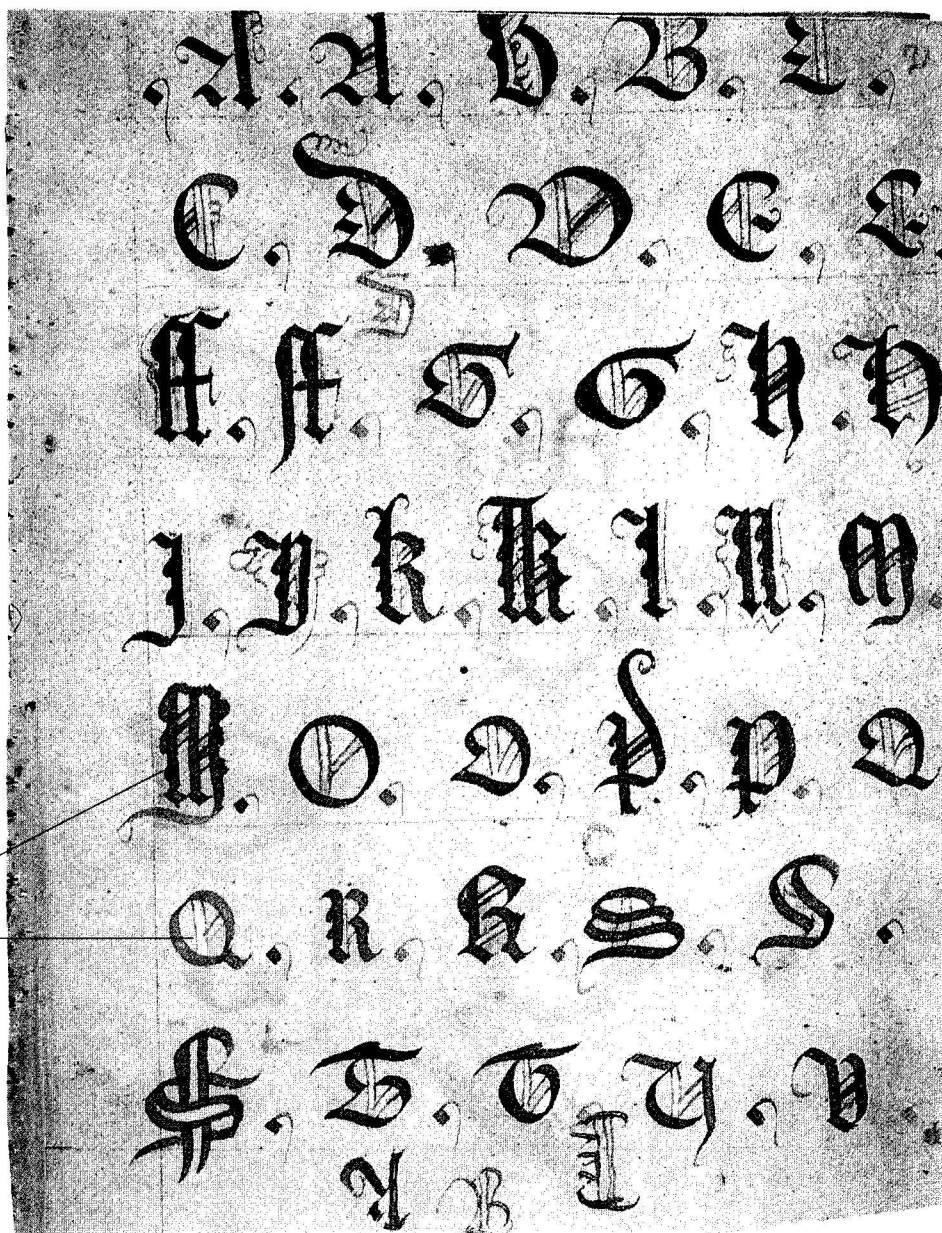 A. A. B. B. C.
C. D. D. E. E.
ff. ff. G. G. H. H
J. J. K. K. L. N. M.
M. O. O. P. P. Q
Q. R. R. S. S.
S. T. T. U. V.
A B